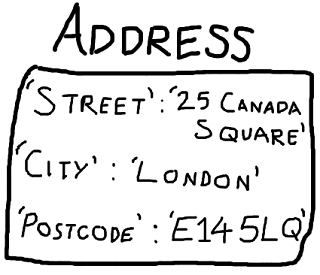 ADDRESS
'STREET': '25 CANADA
SQUARE'
'CITY' : 'LONDON'
'POSTCODE' : 'E145LQ'